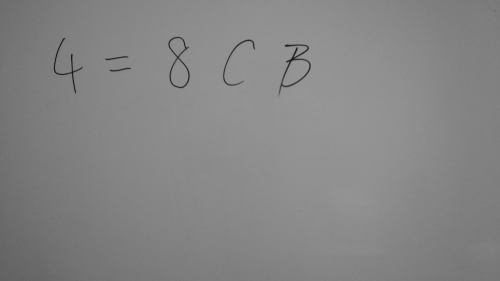 4 = 8 C B